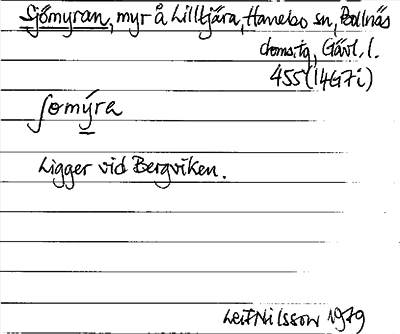 Sjömyran, myr å Lilltjära, Hanebo sn, Bollnäs
doms.tg, Gävl. l.
455 (14G7i)
ʃomýra
Ligger vid Bergviken.
Leif Nilsson 1979